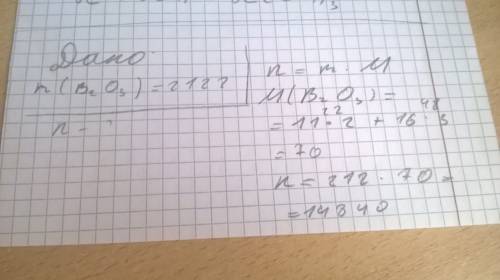 Дано:
m(B₂O₃) = 212г
n - ?
n = m · M
M(B₂O₃) =
22 48
= 11 · 2 + 16 · 3
= 70
n = 212 · 70 =
= 14840